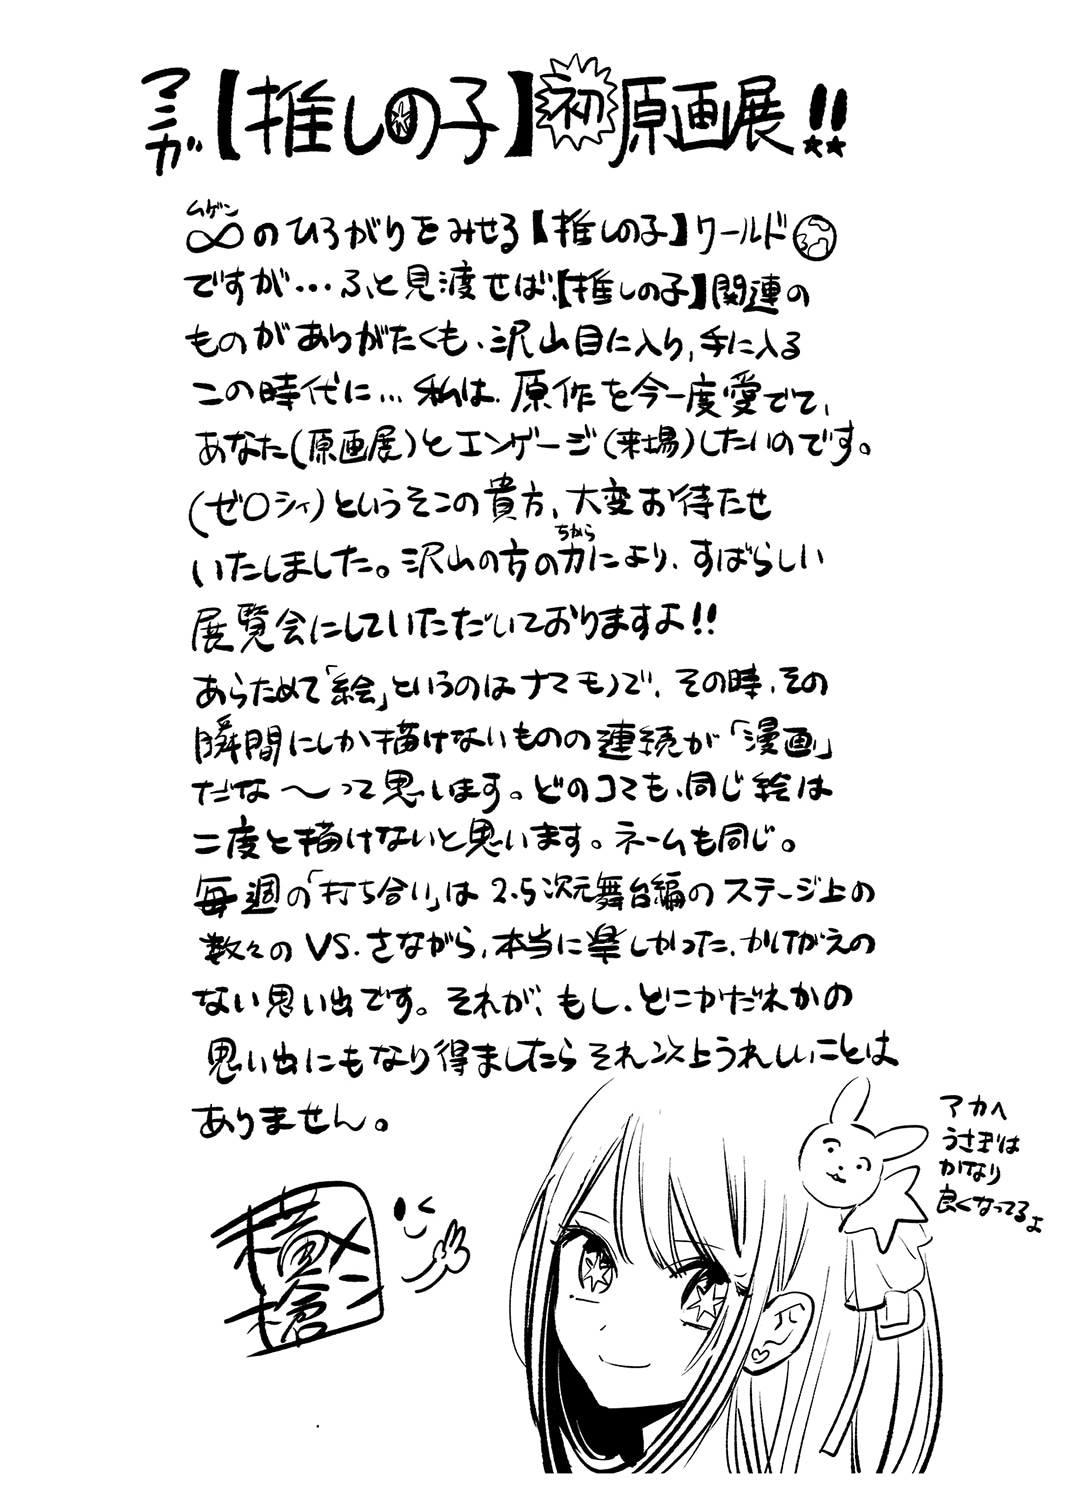 マンガ【推しの子】初原画展!!
∞のひろがりをみせる【推しの子】ワールド
ムゲン
ですが…ふと見渡せば、【推しの子】関連の
ものがありがたくも、沢山目に入り、手に入る
この時代に…私は、原作を今一度愛でて、
あなた(原画展)とエンゲージ(来場)したいのです。
(ゼ〇シィ)というそこの貴方、大変お待たせ
いたしました。沢山の方の力により、すばらしい
ちから
展覧会にしていただいておりますよ!!
あらためて「絵」というのはナマモノで、その時、その
瞬間にしか描けないものの連続が「漫画」
だな〜って思います。どのコマも、同じ絵は
二度と描けないと思います。ネームも同じ。
毎週の「打ち合い」は2.5次元舞台編のステージ上の
数々のVS.さながら、本当に楽しかった、かけがえの
ない思い出です。それが、もし、どこかだれかの
思い出にもなり得ましたらそれ以上うれしいことは
ありません。
アカへ
うさ玉は
かなり
良くなってるよ
横槍
メンゴ